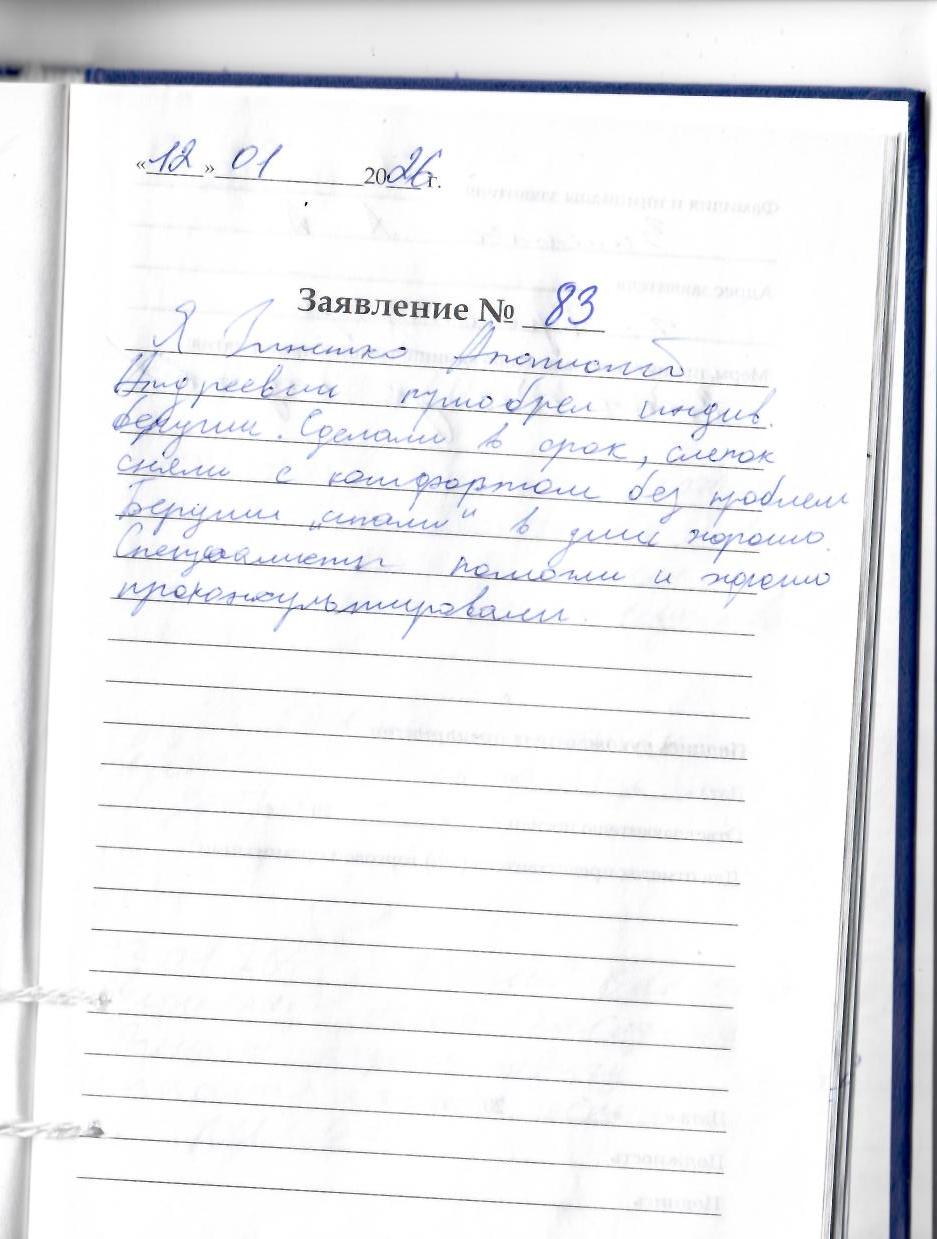 «12» 01 2026 г.
Заявление № 83
Я Анатолий
Андреевич приобрел индив.
беруши. Сделали в срок, слепок
сняли с комфортом без проблем
Беруши „стали" в уши хорошо.
Специалисты помогли и хорошо
проконсультировали.